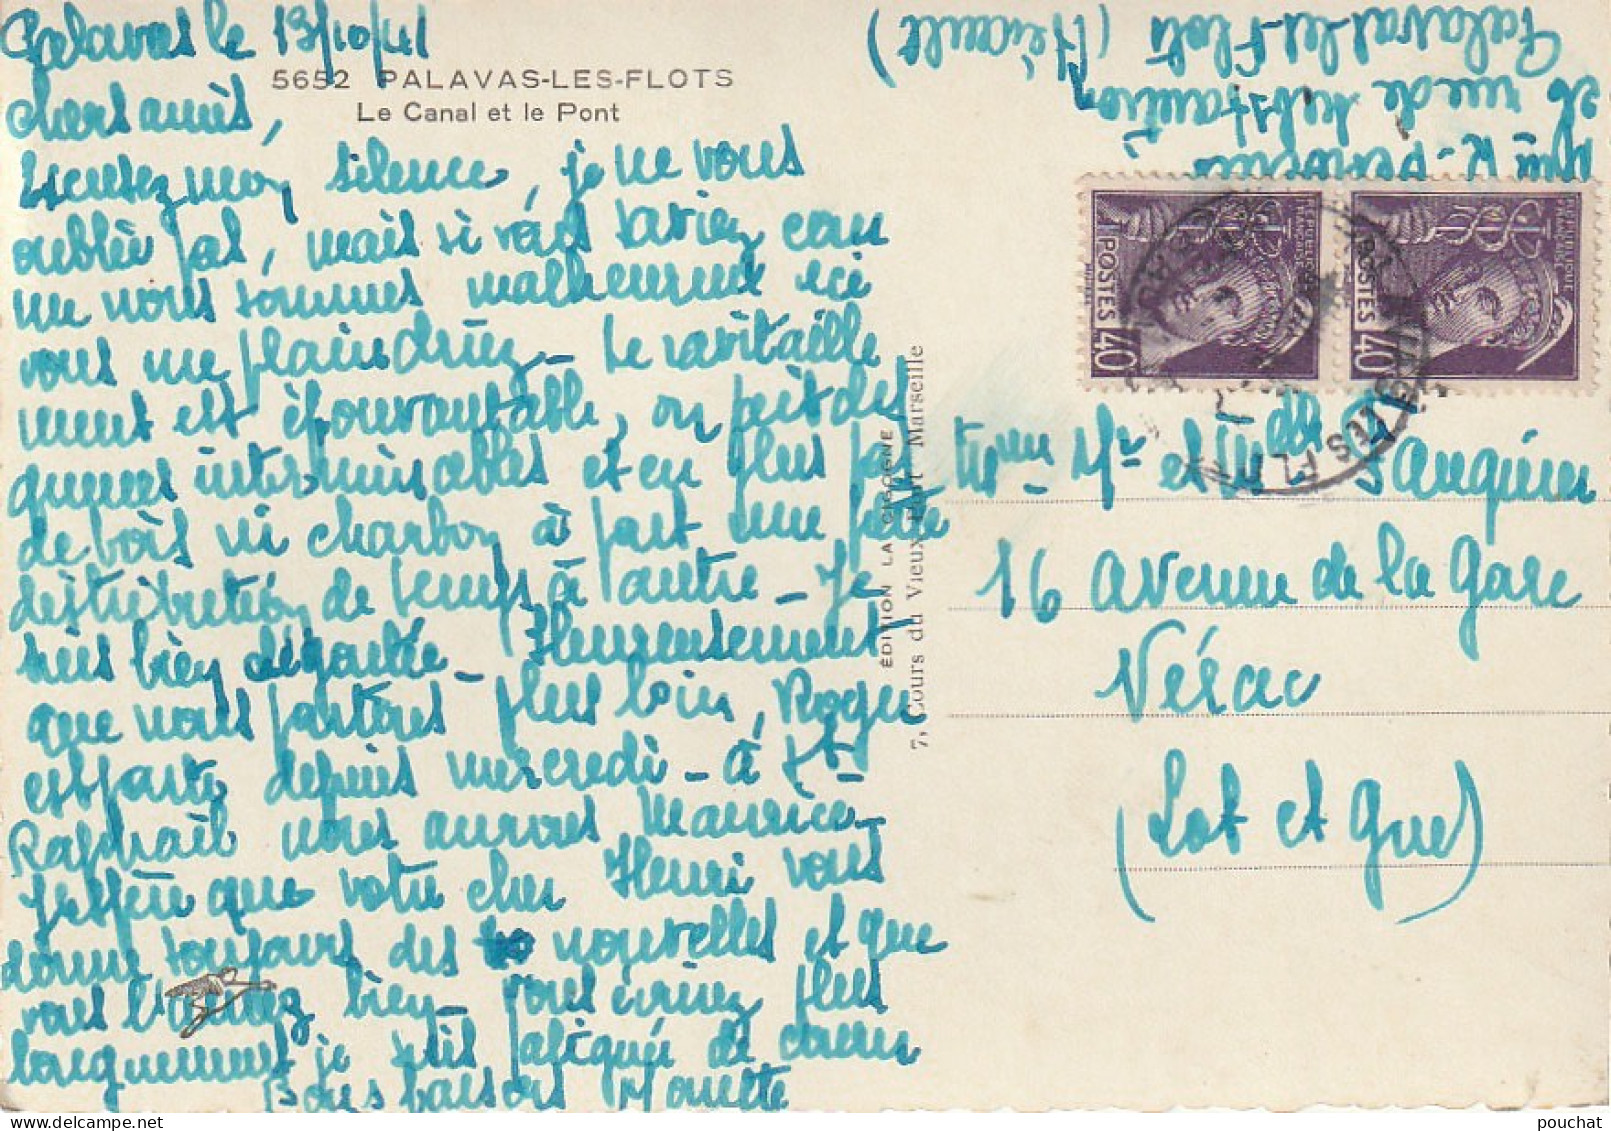 Palavas le 13/10/41
5652 PALAVAS-LES-FLOTS
Le Canal et le Pont
chers amis,
Excusez mon silence, je ne vous
oublie pas, mais si vous saviez com
me nous sommes malheureux ici
vous me plaindriez - Le ravitaille
ment est épouvantable, on fait des
queues interminables et en plus pas
de bois ni charbon à part une petite
distribution de temps à autre - Je
suis bien dégoutée - Heureusement
que nous partons plus loin, Roger
est parti depuis mercredi - à St-
Raphaël nous aurons Maurice -
J'espère que votre cher Henri vous
donne toujours des nouvelles et que
vous l'aurez bien - vous écrirez plus
longuement je suis fatiguée de courir
Bons baisers Monette
ÉDITION LA CIGOGNE
7, Cours du Vieux Port - Marseille
rue de substantion
Palavas-les-Flots (Hérault)
RÉPUBLIQUE FRANÇAISE
POSTES 40
RÉPUBLIQUE FRANÇAISE
POSTES 40
PALAVAS LES FLOTS
Mme Mr et Mdlle Sanguin
16 avenue de la Gare
Nérac
(Lot et Gne)
pouchat